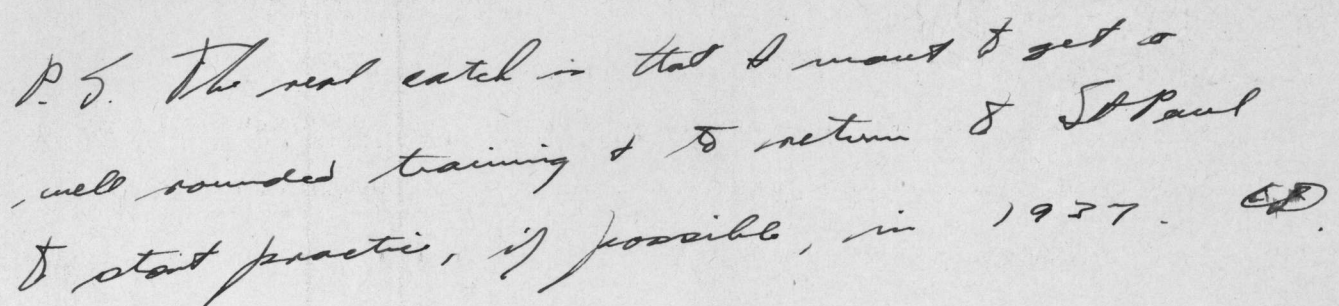 P.S. The real catch is that I want to get a
well rounded training & to return to St Paul
to start practice, if possible, in 1937.